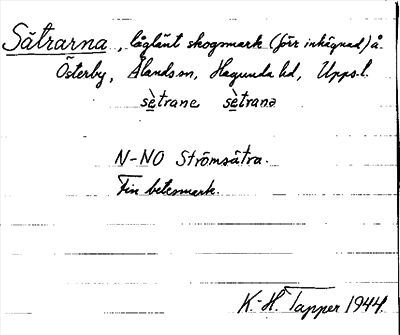 Sätrarna, låglänt skogsmark (förr inhägnad) å
Österby, Ålands sn, Hagunda hd, Upps. l.
sètrane sètrana
N-NO Strömsätra.
Fin betesmark.
K-H. Tapper 1944.